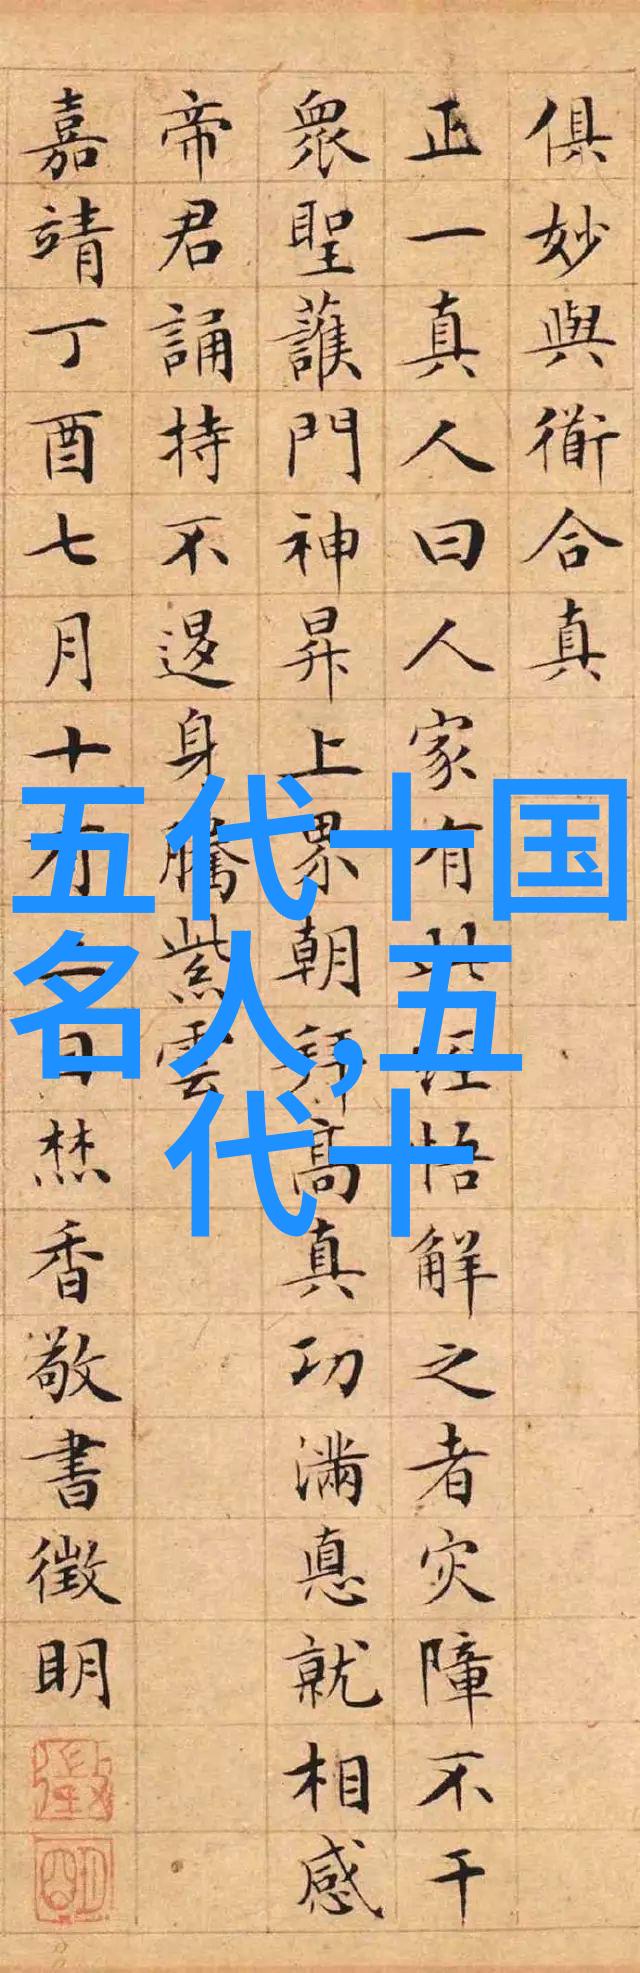 俱妙與衜合真
正一真人曰人家有此經悟解之者灾障不干
衆聖護門神昇上界朝拜高真功滿悳就相感
帝君誦持不退身騰紫雲
嘉靖丁酉七月十有日焚香敬書徵明
徵明
五代十国
名人,五
代十